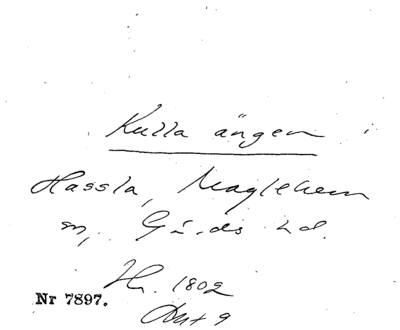 Kulla ängen i
Hassla, Maglehem
sn, Gärds hd.
Hr. 1802
Nr 7897.
Akt 9